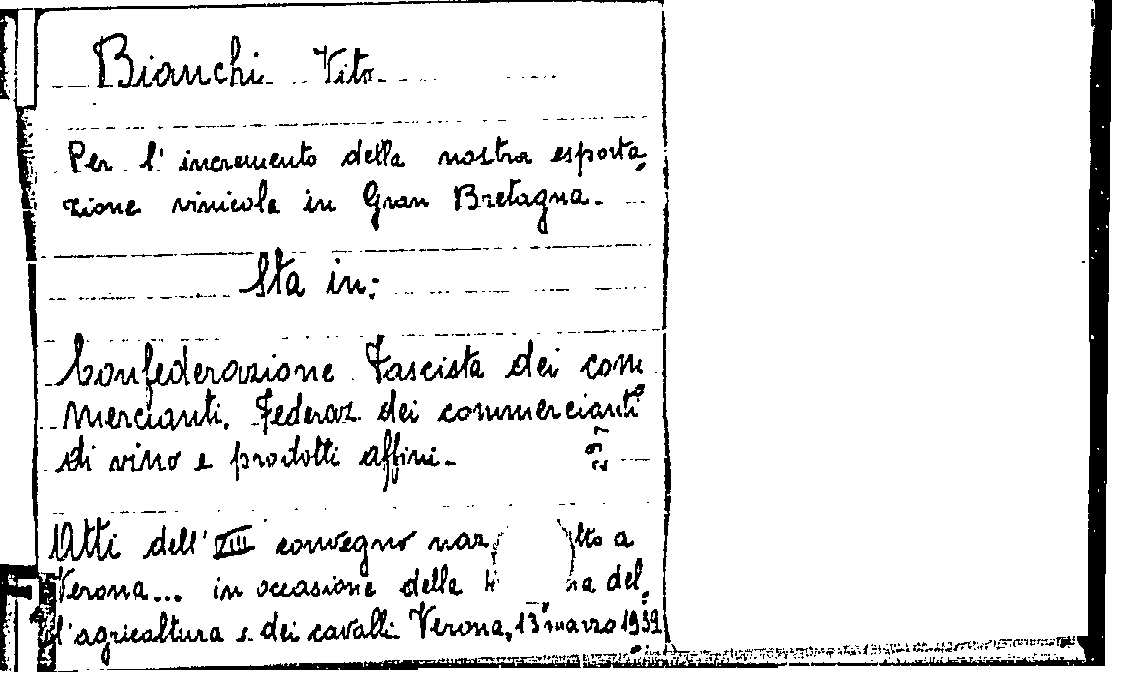 Bianchi Vito
Per l' incremento della nostra esporta,
zione vinicola in Gran Bretagna.
Sta in:
Confederazione Fascista dei com
mercianti. Federaz. dei commercianti
di vino e prodotti affini.
297
Atti dell' VIII convegno naz lto a
Verona... in occasione della ra del,
l'agricoltura e dei cavalli. Verona, 13 marzo 1939